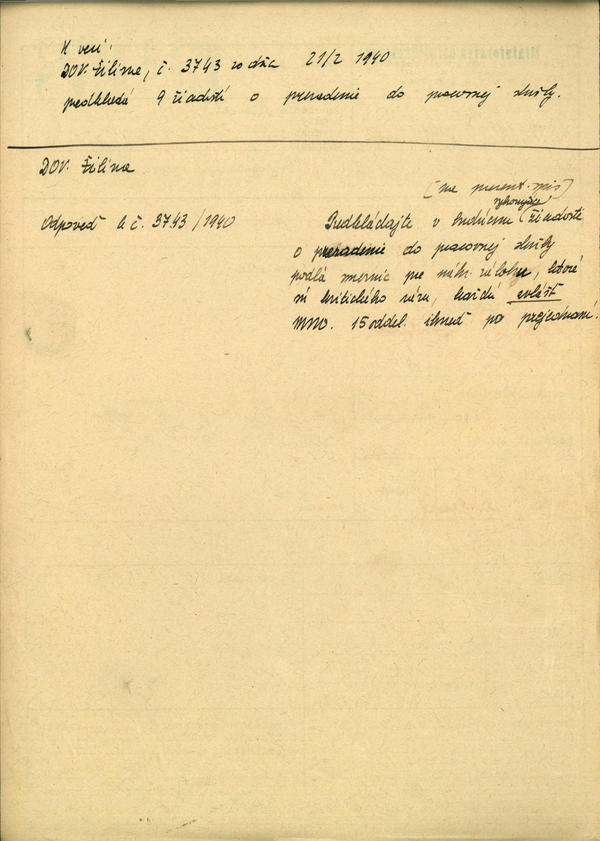 K veci:
DOV. Žilina, č. 3743 zo dňa 21/2 1940
predkladá 9 žiadostí o preradenie do pracovnej služby.
DOV. Žilina
Odpoveď k č. 3743/1940
(na prezent. spis)
Predkladajte v budúcnu žiadosti
o preradenie do pracovnej služby
podľa smerníc pre náhr. zálohu, ktoré
sú kritického rázu, každú zvlášť
MNO. 15 oddel. ihneď po prejednaní.